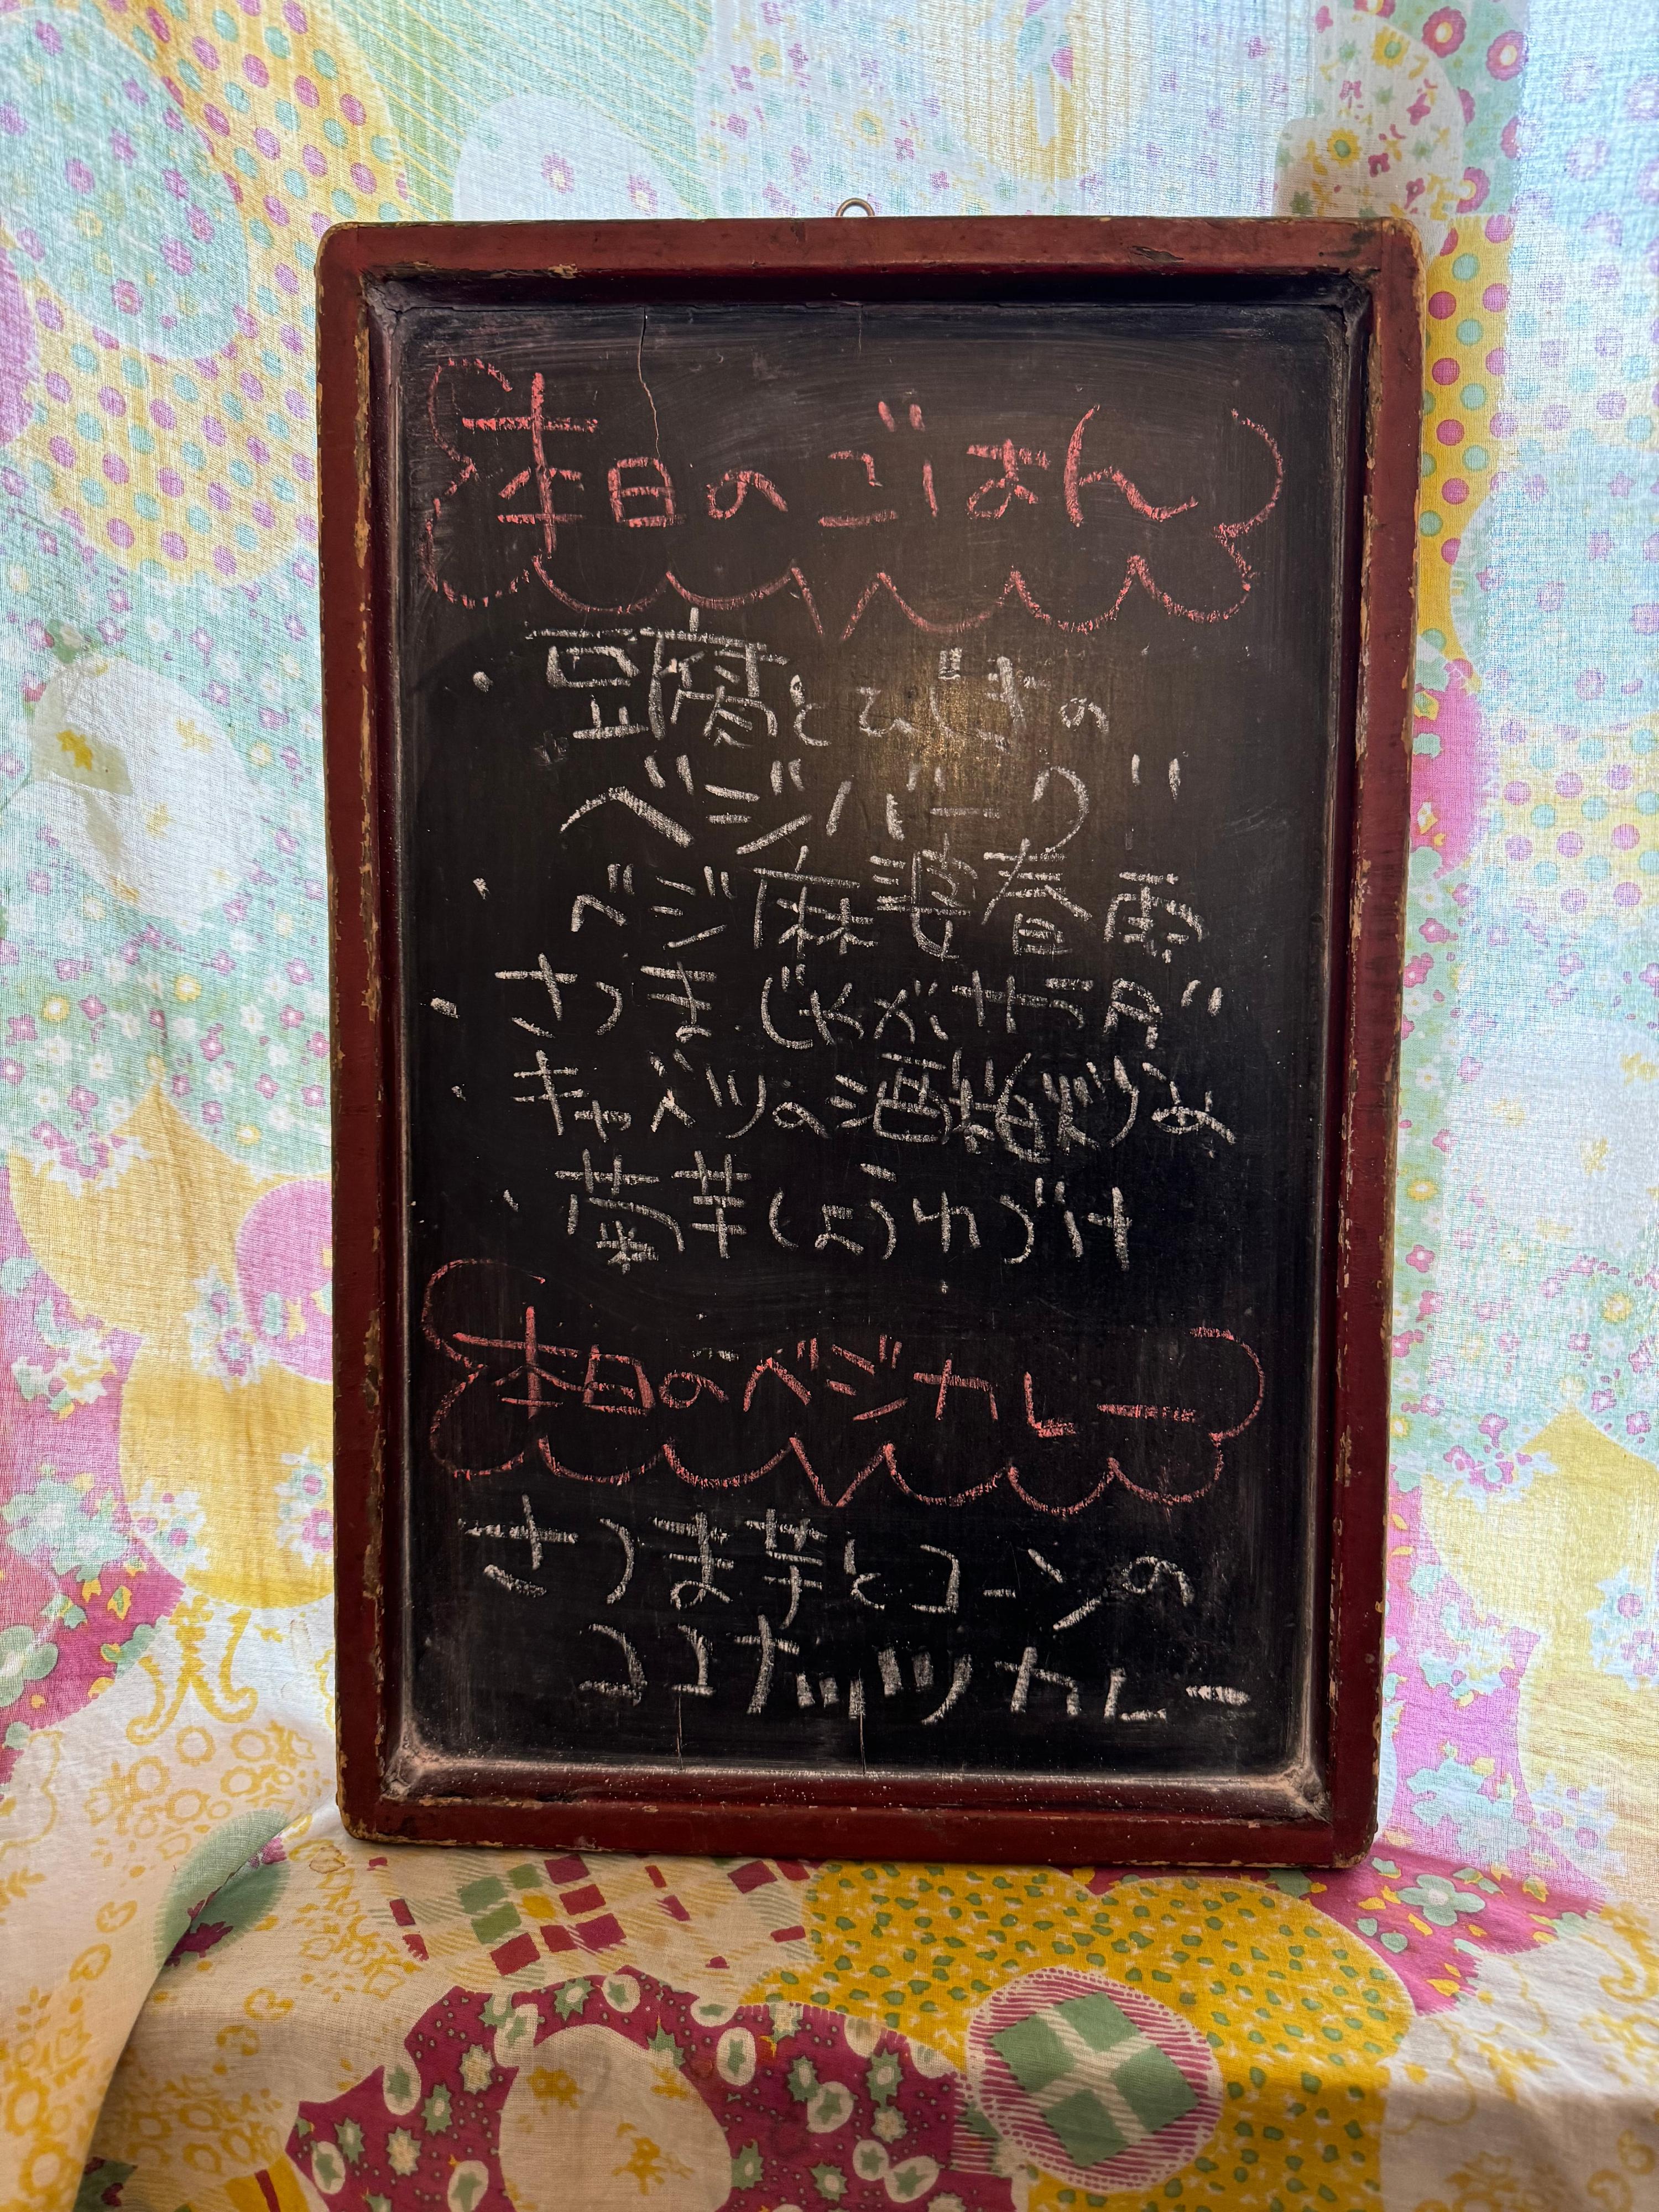 本日のごはん
・豆腐とひじきの
ベジバーグ
・ベジ麻婆春雨
・さつまじゃがサラダ
・キャベツの酒粕ぞりゐ
・菊芋しょうゆづけ
本日のベジカレー
さつま芋とコーンの
ココナッツカレー